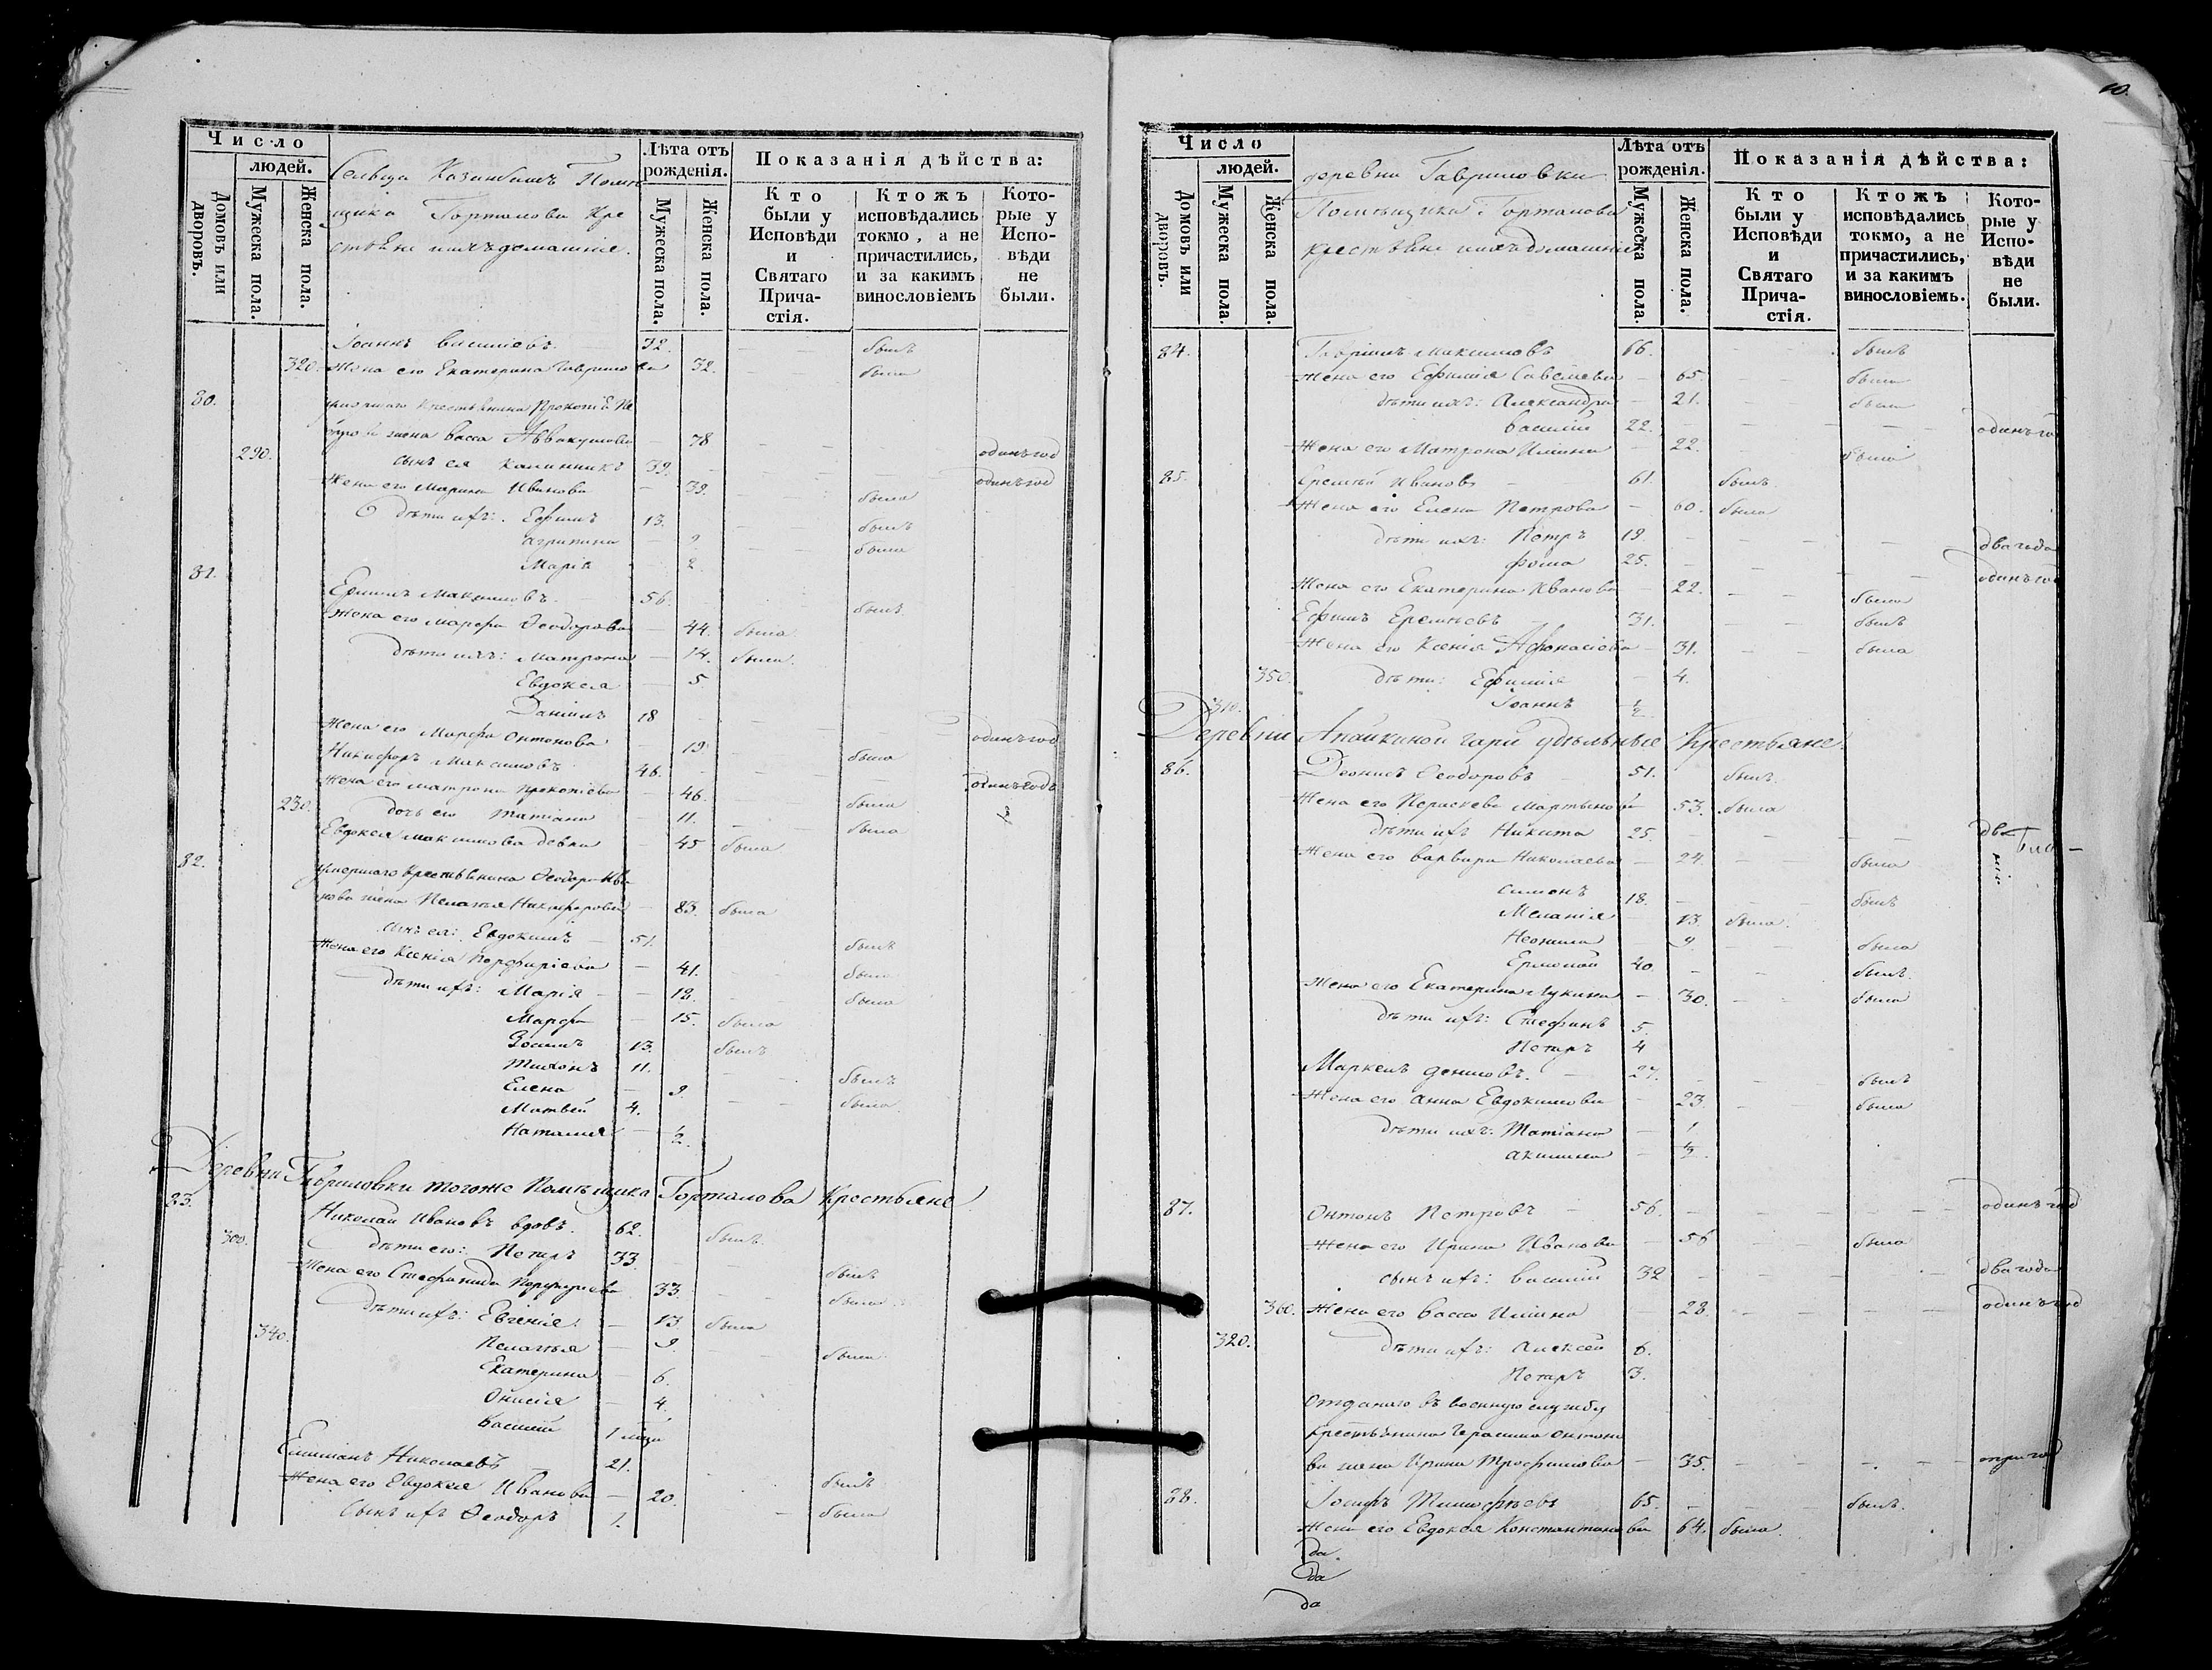 Число
людей.
Домовъ или дворовъ.
Мужеска пола.
Женска пола.
Сельца Помѣ
щика Горталова Кре
стьяне ихъ домашніе.
Лѣта отъ рожденія.
Мужеска пола.
Женска пола.
Показанія дѣйства:
Кто были у Исповѣди и Святаго Прича-стія.
Ктожъ исповѣдались токмо, а не причастились, и за какимъ винословіемъ
Кото-рые у Испо-вѣди не были.
Іоаннъ Васильевъ 32. – – былъ
320. Жена его Екатерина Гаврилова 32. – – была
80. умершаго крестьянина Прокопія Пе
жена Васса Аввакумова – 78 – – одинъ год
290. сынъ ея Каллиникъ 39. – одинъ год
Жена его Марина Иванова – 39. – – была
дѣти ихъ: Ефимъ 13. – – былъ
Агрипина – 9 – – была
Марія – 2.
81. Ермилъ Максимовъ. 56. былъ
Жена его Марфа Ѳеодорова – 44. была
дѣти ихъ: Матрона – 14. была.
Евдокея – 5
Даніилъ 18 – – одинъ год
Жена его Марфа Онтонова – 19 была
Никифоръ Максимовъ 46. – – одинъ годъ
Жена его Матрона Прокопіева – 46. была
230. дочь его Татіана – 11. – была
Евдокея Максимова девка – 45 была
82. умершаго крестьянина Ѳеодора Ива
нова жена Пелагея Никифорова – 83. была
сынъ ея: Евдокимъ – 51. былъ
Жена его Ксенія Порфиріева – 41. была
дѣти ихъ: Марія – – 12. – была
Марфа – 15. была
Зосимъ 13. былъ
Тихонъ 11. – – былъ
Елена – 9. – – была.
Матвей 4.
Наталія – 1/2.
Деревни Гавриловки тогоже Помѣщика Горталова Крестьяне
83. Николай Ивановъ вдовъ. 62. былъ.
300. дѣти его: Петръ 33. – – былъ
Жена его Стефанида Порфиріева 33. – – была
дѣти ихъ: Евгенія. – 13 была
340. Пелагея – 9. – была
Екатерина – 6.
Онисія – 4.
Василій 1 мца
Емиліанъ Николаевъ 21. былъ
Жена его Евдокея Иванова – 20. – была
Сынъ ихъ Ѳеодоръ 1.
10.
Число
людей.
Домовъ или дворовъ.
Мужеска пола.
Женска пола.
деревни Гавриловки
Помѣщика Горталова
крестьяне ихъ домашніе
Лѣта отъ рожденія.
Мужеска пола.
Женска пола.
Показанія дѣйства:
Кто были у Исповѣди и Святаго Прича-стія.
Ктожъ исповѣдались токмо, а не причастились, и за какимъ винословіемъ.
Кото-рые у Испо-вѣди не были.
84. Гавріилъ Максимовъ 66. – – былъ
Жена его Ефимія Савельева – 65. – – была
дѣти ихъ: Александра – 21. – – была
Василій 22. – – – – одинъ го
Жена его Матрона Ильина – 22. была
85. Еремѣй Ивановъ – 61. былъ.
Жена его Елена Петрова – 60. была
дѣти ихъ: Петръ 19. – – – два года
Фома 25. – – – одинъ год
Жена его Екатерина Иванова – 22. – – была
Ефимъ Еремѣевъ – 31. – – былъ
Жена его Ксенія Афонасіева – 31. – – была
350. дѣти: Ефимія – 4.
310. Іоаннъ 1/2
Деревни Апайкиной гари удѣльные Крестьяне.
86. Деонисъ Ѳеодоровъ – 51. былъ.
Жена его Параскева Мартынова 53. была
дѣти ихъ Никита 25. – – – два
Жена его Варвара Николаева – 24. – была
Симонъ 18. – – былъ
Меланія – 13 была.
Неонила – 9. – – была
Ермолай 20. – – былъ.
Жена его Екатерина Лукина – 30. – – была
дѣти ихъ: Стефанъ 5.
Петръ 4
Маркелъ Денисовъ. – 27. – – былъ
Жена его Анна Евдокимова – 23 – – была
дѣти ихъ: Татіана – 1
Акилина – 1/2.
87. Онтонъ Петровъ – 56. – – – – одинъ год
Жена его Ирина Иванова – 56 – – была
сынъ ихъ: Василій 32 – – – – два года
360. Жена его Васса Ильина – 28. – – – – одинъ год
320. дѣти ихъ: Алексей 6.
Петръ 3.
Отданаго въ военную службу
крестьянина Герасима Онтоно
ва жена Ирина Трофимова – 35. – – – – три год
88. Іосифъ Тимофѣевъ 65. – – былъ.
Жена его Евдокея Константинова 64. была.
да
да
да